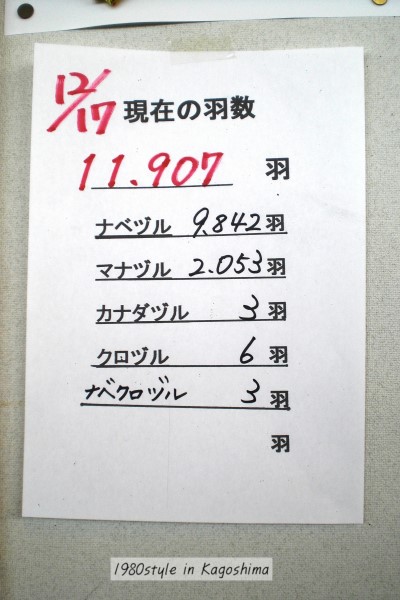 12/17 現在の羽数
11.907 羽
ナベヅル 9.842羽
マナヅル 2.053羽
カナダヅル 3 羽
クロヅル 6 羽
ナベクロヅル 3 羽
羽
1980style in Kagoshima